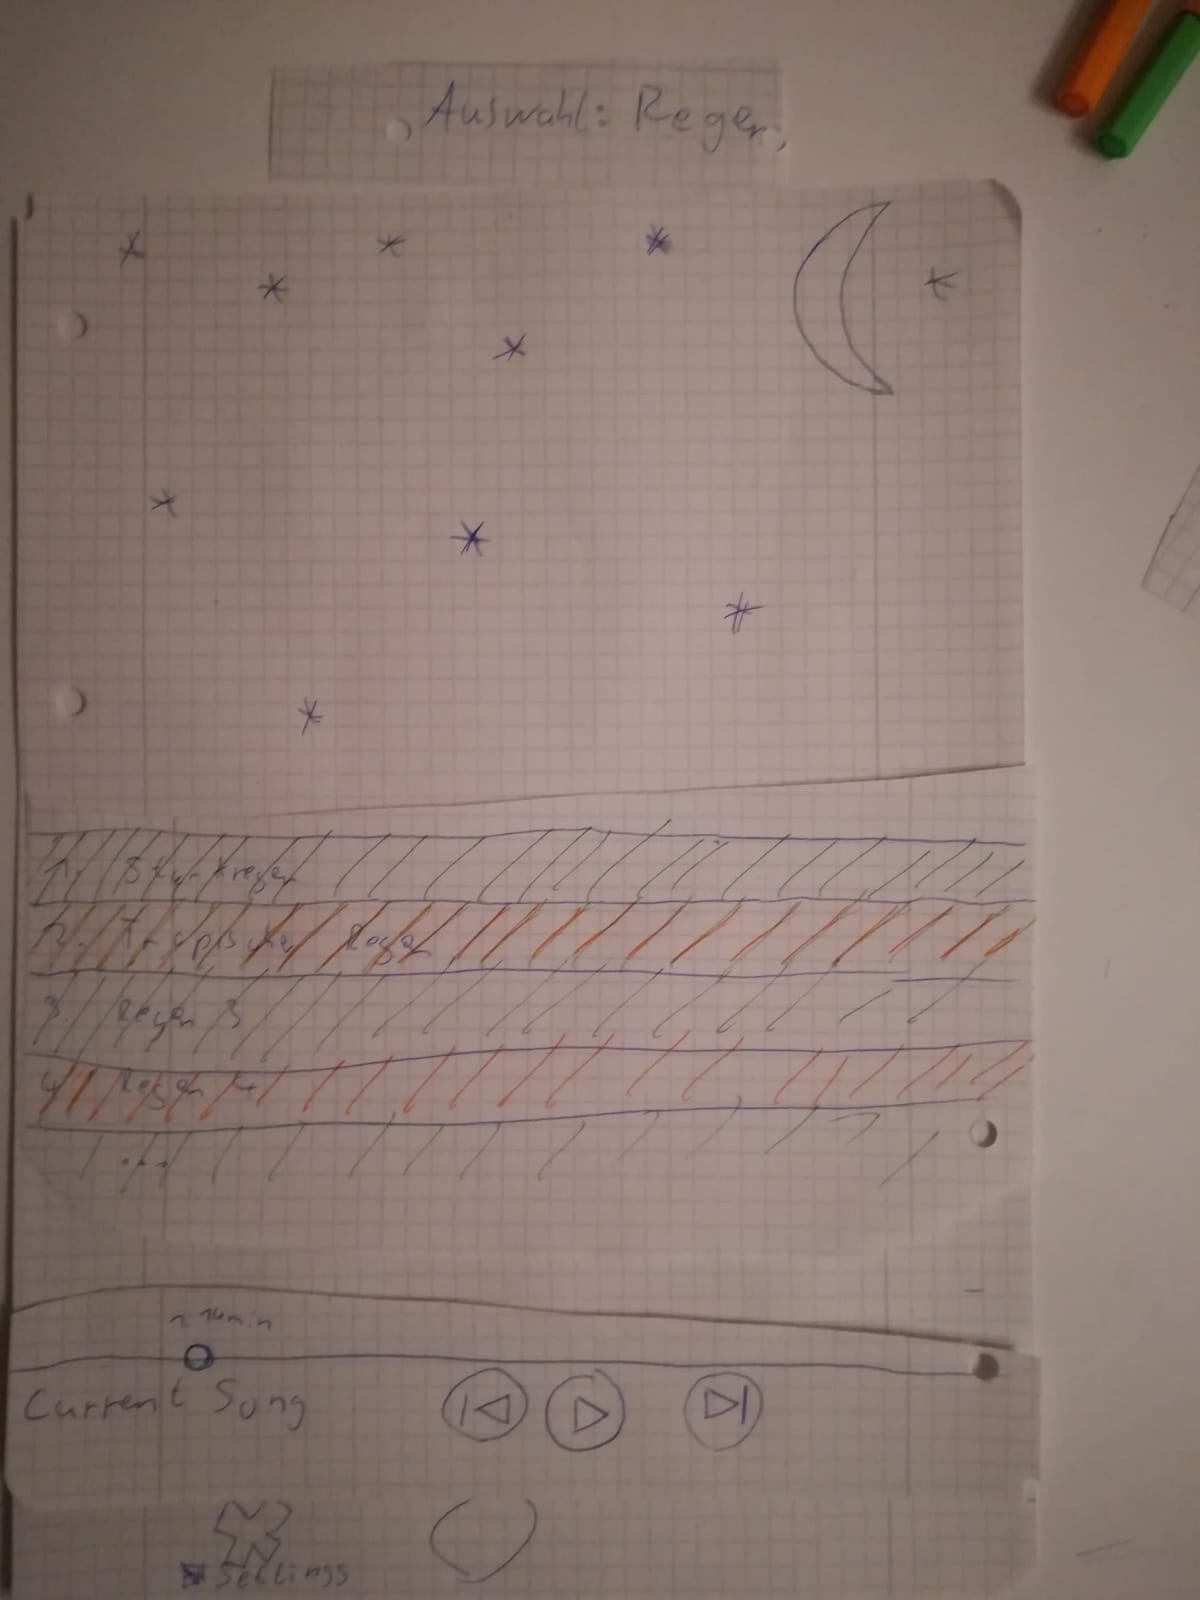 Auswahl: Regen
1. Starkregen
2. Tropischer Regen
3. Regen 3
4. Regen 4
...
Current Song
Settings